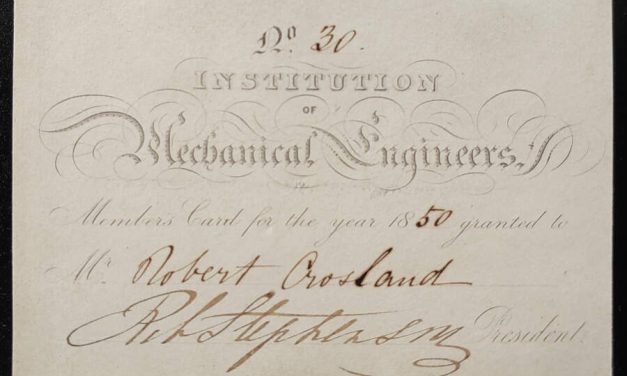 No. 30.
INSTITUTION
OF
Mechanical Engineers,
Members Card for the year 1850 granted to
Mr. Robert Crosland
Rob Stephenson President.